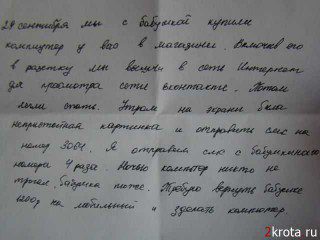 29 сентября мы с бабушкой купили
компьютер у вас в магазини. Включив его
в разетку мы вышли в сете Интернет
для просмотра сети вконтакте. Потом
легла спать. Утром на экрани была
непристойная картинка и отправить смс на
номер 3064. Я отправляла смс с бабушкиного
номора 4 раза. Ночью компьтер никто не
трогал, бабушка тоже. Требую вернуть бабушке
1200р на мобильный и зделать компютор
2krota ru